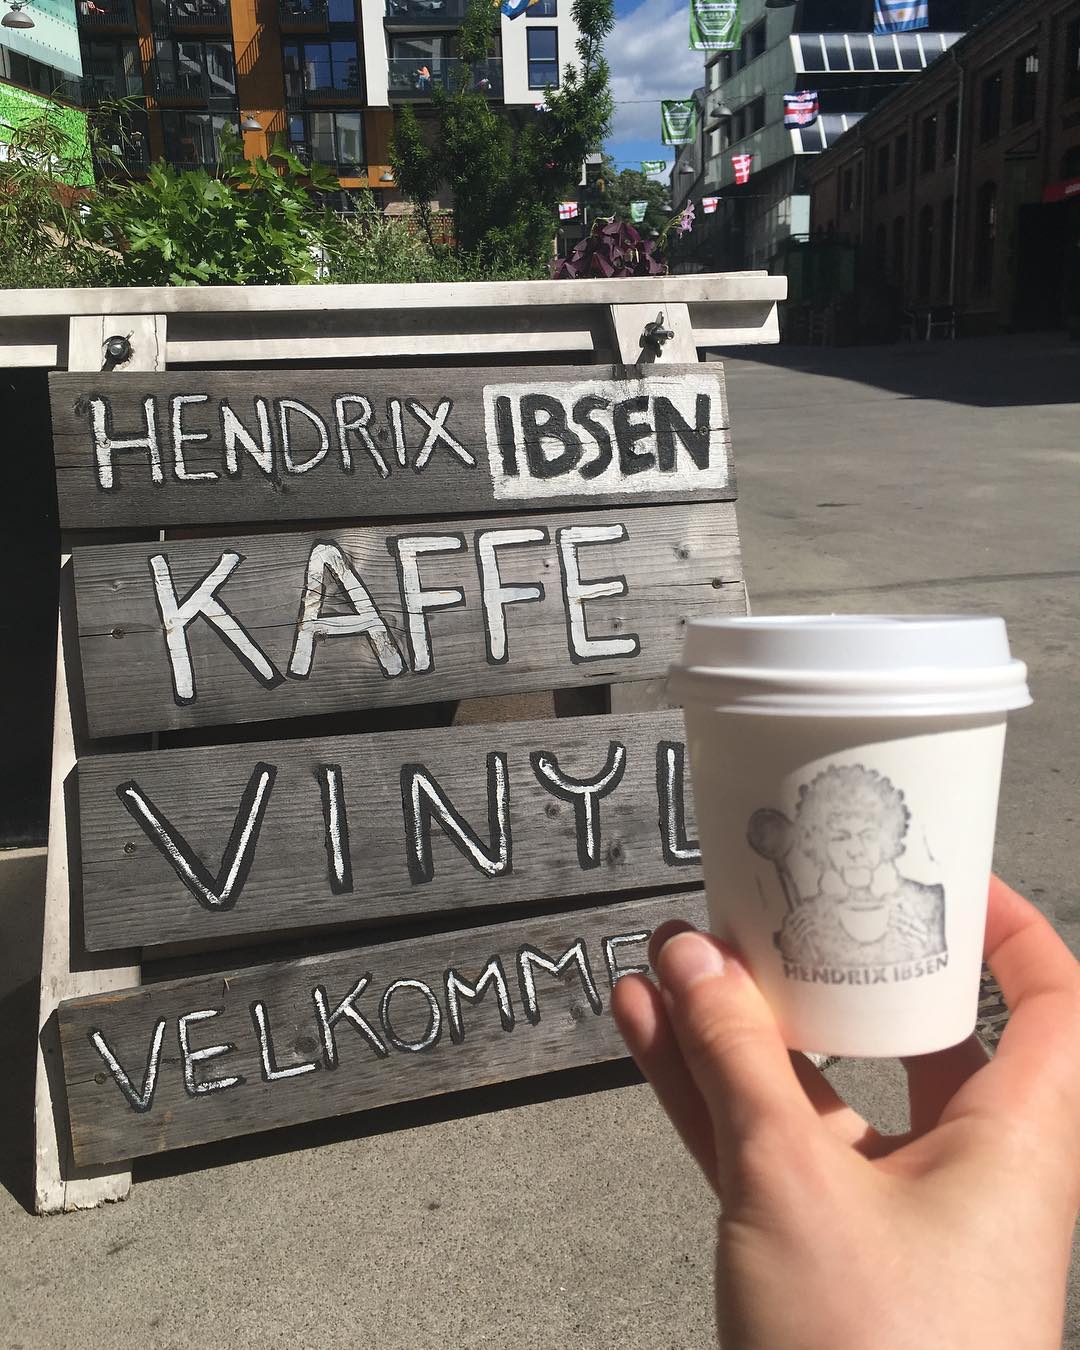 HENDRIX IBSEN
KAFFE
VINYL
VELKOMME
HENDRIX IBSEN